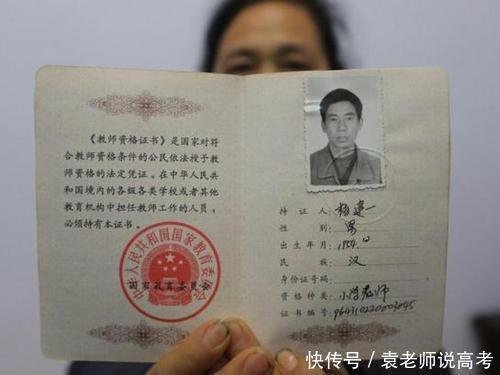 《教师资格证书》是国家对符
合教师资格条件的公民依法授予教
师资格的法定凭证。在中华人民共
和国境内的各级各类学校或者其他
教育机构中担任教师工作的人员，
必须持有本证书。
中华人民共和国国家教育委员会
国家教育委员会
持 证 人：杨建一
性 别：男
出生年月：1954.12
民 族：汉
身份证号码：
资格种类：小学教师
证书编号：
快传号／袁老师说高考